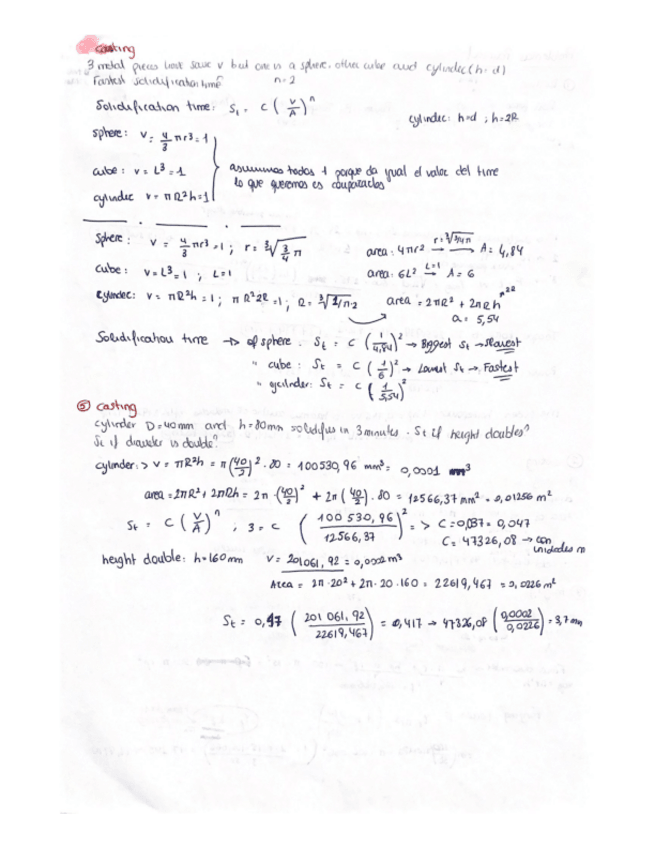 casting
3 metal pieces have same v but one is a sphere, other cube and cylinder (h=d)
Fastest solidification time? n=2
Solidification time: St = C (V/A)^n
cylinder: h=d ; h=2R
sphere: V = 4/3 πr³ = 1
cube: V = L³ = 1
cylinder V = πR²h = 1
asumimos todos 1 porque da igual el valor del time
lo que queremos es compararlos
Sphere: V = 4/3 πr³ = 1 ; r = ∛(3/4 π) area: 4πr² → r=∛3/4π → A = 4,84
Cube: V = L³ = 1 ; L = 1 area: 6L² → L=1 → A = 6
Cylinder: V = πR²h = 1 ; πR²2R = 1 ; R = ∛(1/π·2) area = 2πR² + 2πRh 2R
a = 5,54
Solidification time → of sphere = St = C (1/4,84)² → Biggest St → Slowest
" cube: St = C (1/6)² → Lowest St → Fastest
" cylinder: St = C (1/5,54)²
⑤ casting
cylinder D=40mm and h=80mm solidifies in 3 minutes. St if height doubles?
St if diameter is double?
cylinder: > V = πR²h = π(40/2)² · 80 = 100530,96 mm³ = 0,0001 m³
area = 2πR² + 2πRh = 2π · (40/2)² + 2π (40/2) · 80 = 12566,37 mm² = 0,01256 m²
St = C (V/A)^n ; 3 = C (100 530,96/12566,37)² => C = 0,037 = 0,047
C = 47326,08 → con
unidades m
height double: h=160mm V = 201061,92 = 0,0002 m³
Area = 2π·20² + 2π·20·160 = 22619,467 = 0,0226 m²
St = 0,47 (201 061,92/22619,467) = 0,417 → 47326,08 (0,0002/0,0226) = 3,7 min